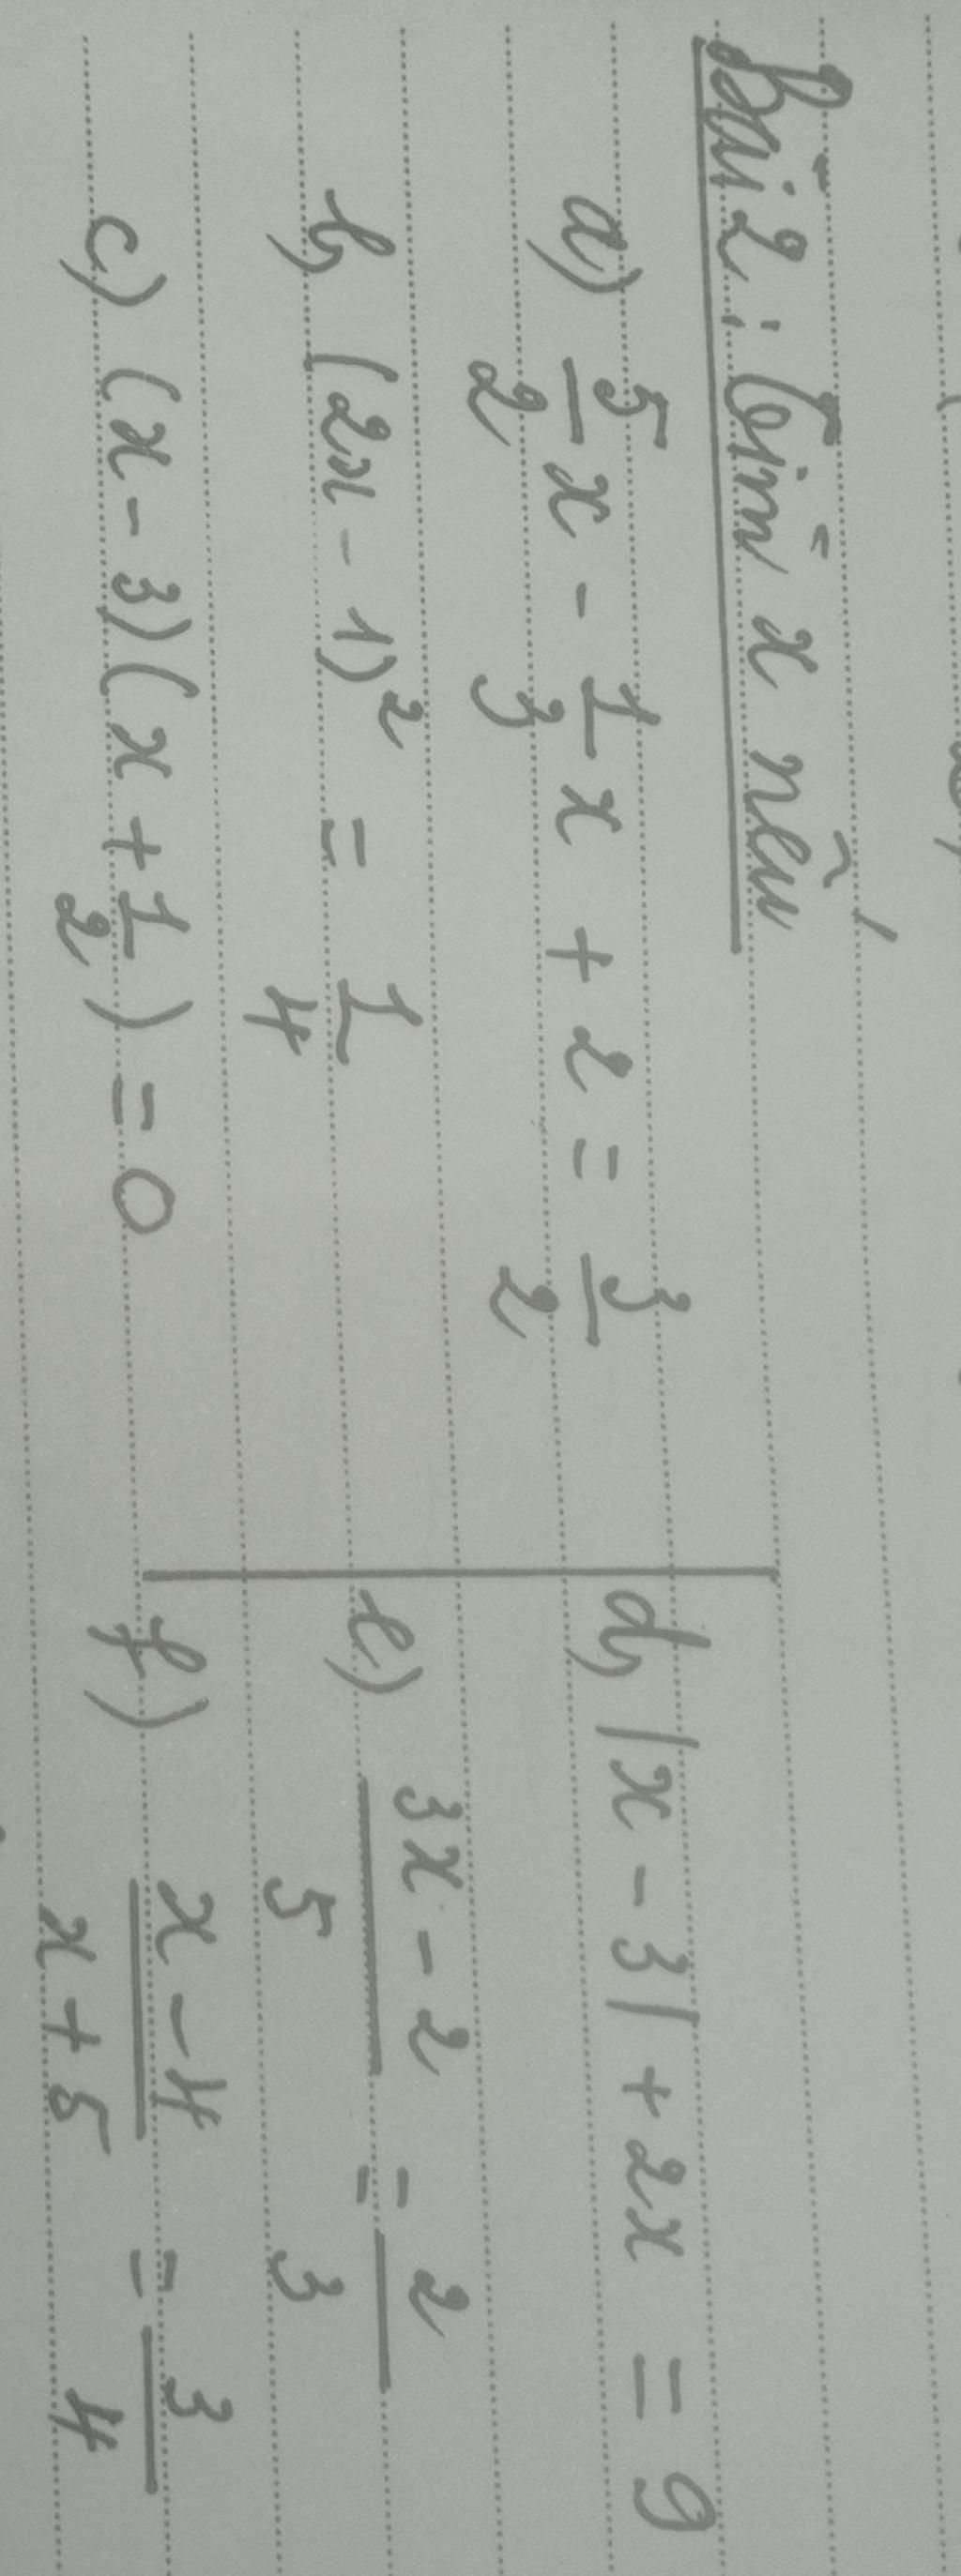 Bài 2: Tìm x nếu
a) 5/2 x - 1/3 x + 2 = 3/2
b) (2x - 1)² = 1/4
c) (x - 3)(x + 1/2) = 0
d) |x - 3| + 2x = 9
e) (3x - 2)/5 = 2/3
f) (x - 4)/(x + 5) = 3/4